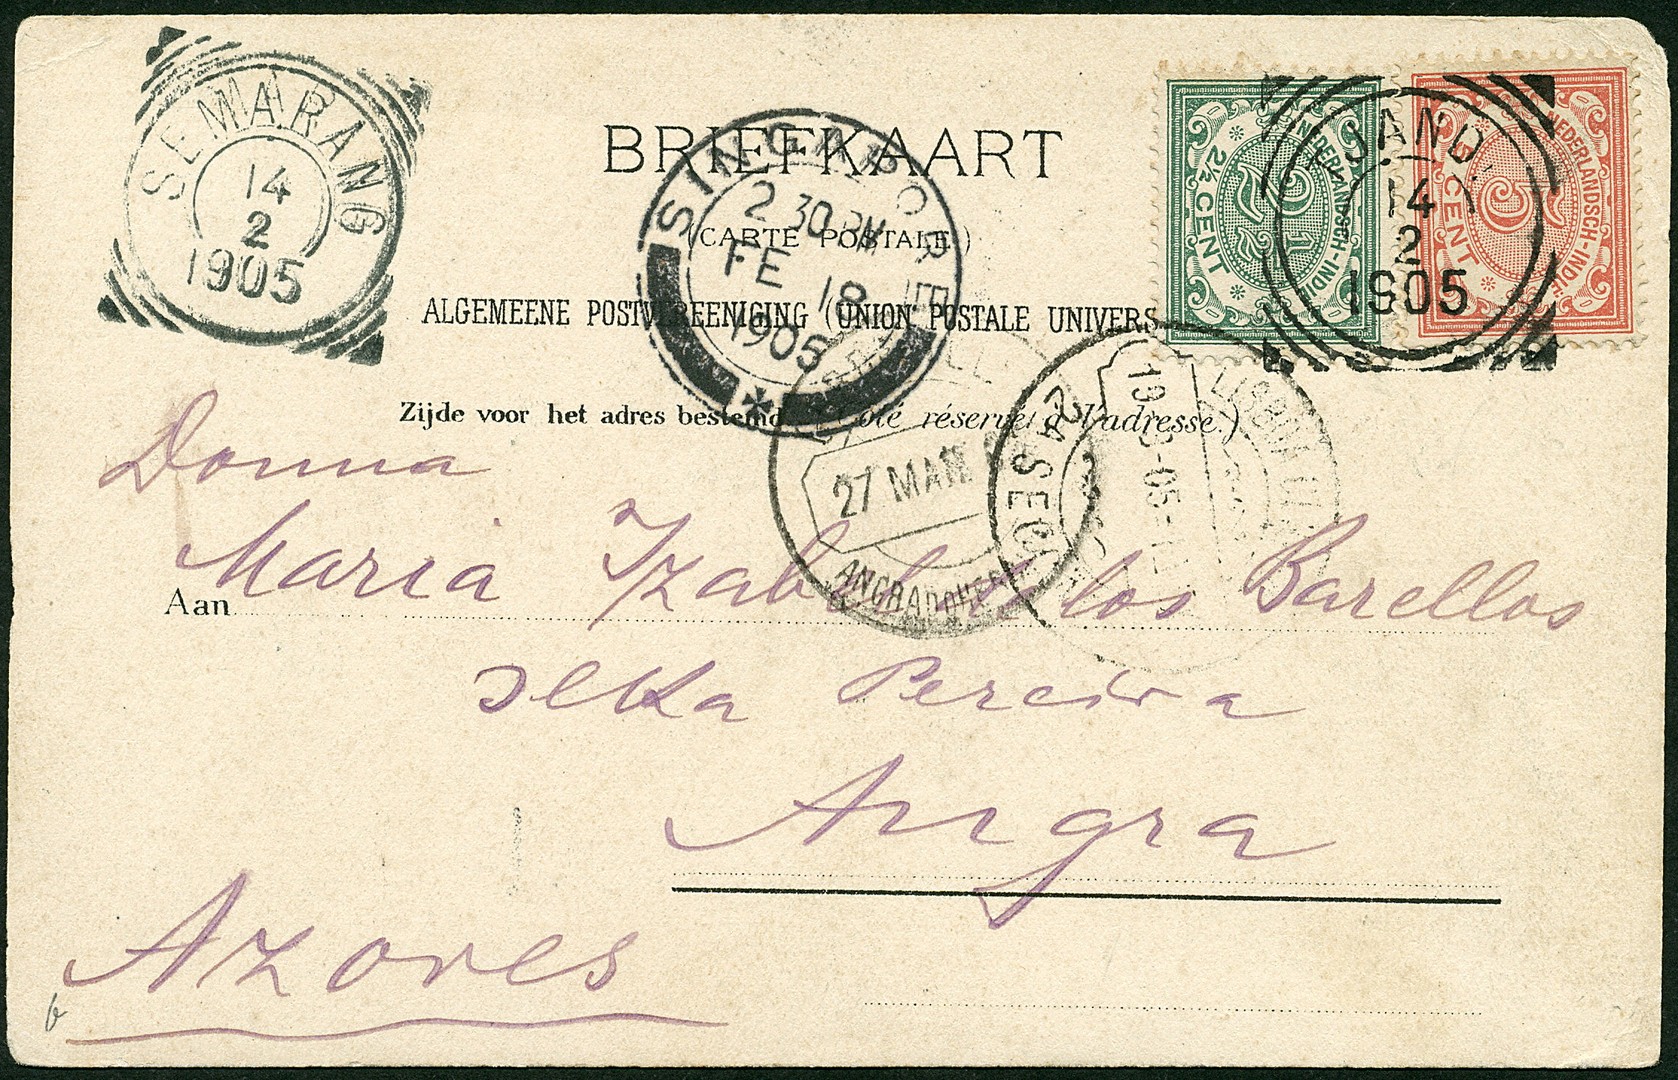 SEMARANG
14
2
1905
BRIEFKAART
(CARTE POSTALE)
SINGAPORE
2 30 PM
FE 18
1905
ALGEMEENE POSTVEREENIGING (UNION POSTALE UNIVERS
Zijde voor het adres bestemd (Côté réservé à l'adresse.)
NEDERLANDSCH-INDIË
2½
2½ CENT
NEDERLANDSCH-INDIË
5
5 CENT
14
2
1905
27 MAR
ANGRA DO HE
2ª SEC
LISBOA
Donna
Aan Maria Izabel Barellos
Pereira
Angra
Azores